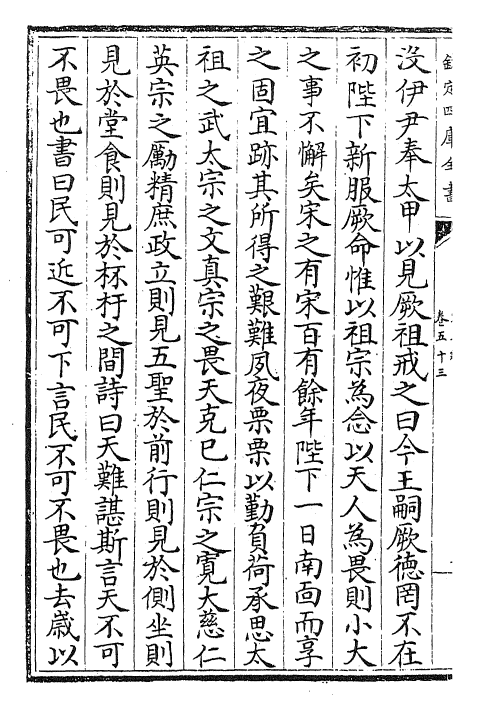 欽定四庫全書
卷五十三
沒伊尹奉太甲以見厥祖戒之曰今王嗣厥徳罔不在
初陛下新服厥命惟以祖宗為念以天人為畏則小大
之事不懈矣宋之有宋百有餘年陛下一日南面而享
之固宜跡其所得之艱難夙夜栗栗以勤負荷承思太
祖之武太宗之文真宗之畏天克已仁宗之寛大慈仁
英宗之勵精庶政立則見五聖於前行則見於側坐則
見於堂食則見於杯杅之間詩曰天難諶斯言天不可
不畏也書曰民可近不可下言民不可不畏也去嵗以